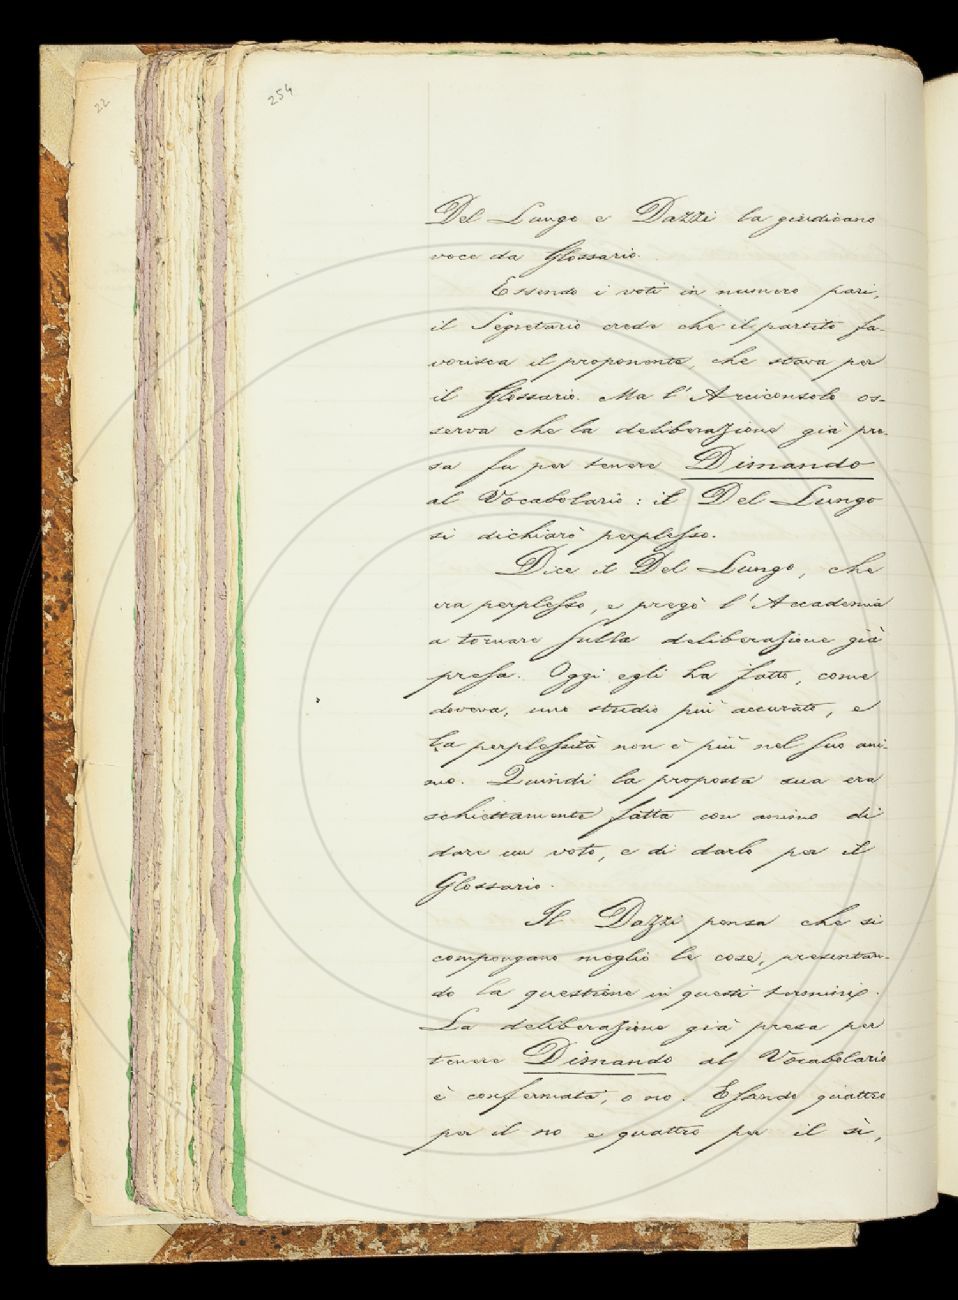 22
254
Del Lungo e Dazzi la giudicano
voce da Glossario.
Essendo i voti in numero pari,
il Segretario crede che il partito fa-
vorisca il proponente, che stava per
il Glossario. Ma l'Arciconsolo os-
serva che la deliberazione già pre-
sa fu per tenere Dimando
al Vocabolario: il Del Lungo
si dichiarò perplesso.
Dice il Del Lungo, che
era perplesso, e pregò l'Accademia
a tornare sulla deliberazione già
presa. Oggi egli ha fatto, come
doveva, uno studio più accurato, e
la perplessità non è più nel suo ani-
mo. Quindi la proposta sua era
schiettamente fatta con animo di
dare un voto, e di darlo per il
Glossario.
Il Dazzi pensa che si
compongano meglio le cose, presentan-
do la questione in questi termini.
La deliberazione già presa per
tenere Dimando al Vocabolario
è confermata, o no. Essendo quattro
per il no e quattro per il sì,